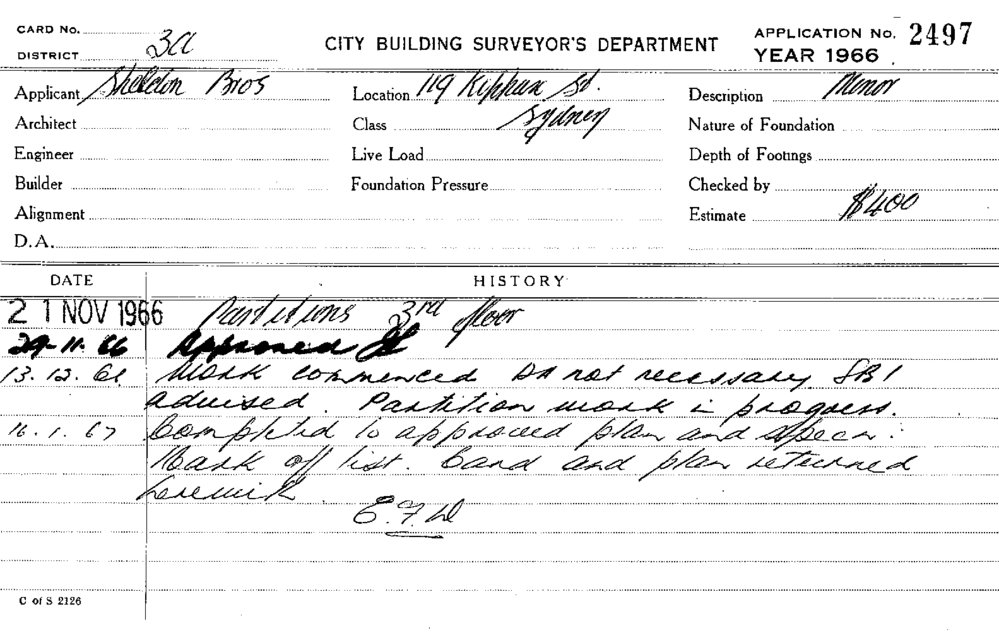 CARD No.
DISTRICT 3a
CITY BUILDING SURVEYOR'S DEPARTMENT
APPLICATION No. 2497
YEAR 1966
Applicant Sheldon Bros
Location 119 Kippax St.
Description Minor
Architect
Class Sydney
Nature of Foundation
Engineer
Live Load
Depth of Footings
Builder
Foundation Pressure
Checked by
Alignment
Estimate $400
D.A.
DATE
HISTORY
21 NOV 1966 Partitions 3rd floor
29-11-66 Approved
13.12.66 Work commenced DA not necessary SBI
advised. Partition work in progress.
16.1.67 Completed to approved plan and specn.
Mark off list. Card and plan returned
herewith
C of S 2126